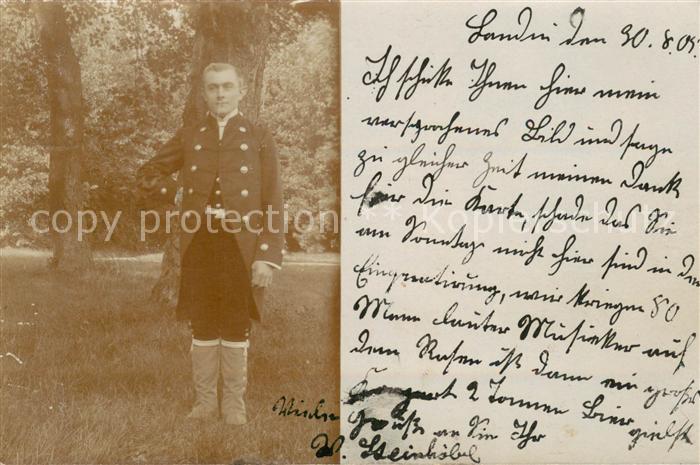 Landin den 30. 8. 05.
Ich schicke Ihnen hier mein
versprochenes Bild und sage
zu gleicher Zeit meinen Dank
für die Karte, schade das Sie
am Sontag nicht hier sind in der
Einquatirung, wir kriegen 80
Mann lauter Musicker auf
dem Rasen ist dann ein großes
2 Tonnen Bier
Gruß an Sie Ihr
W.
copy protection ** Kopierschutz